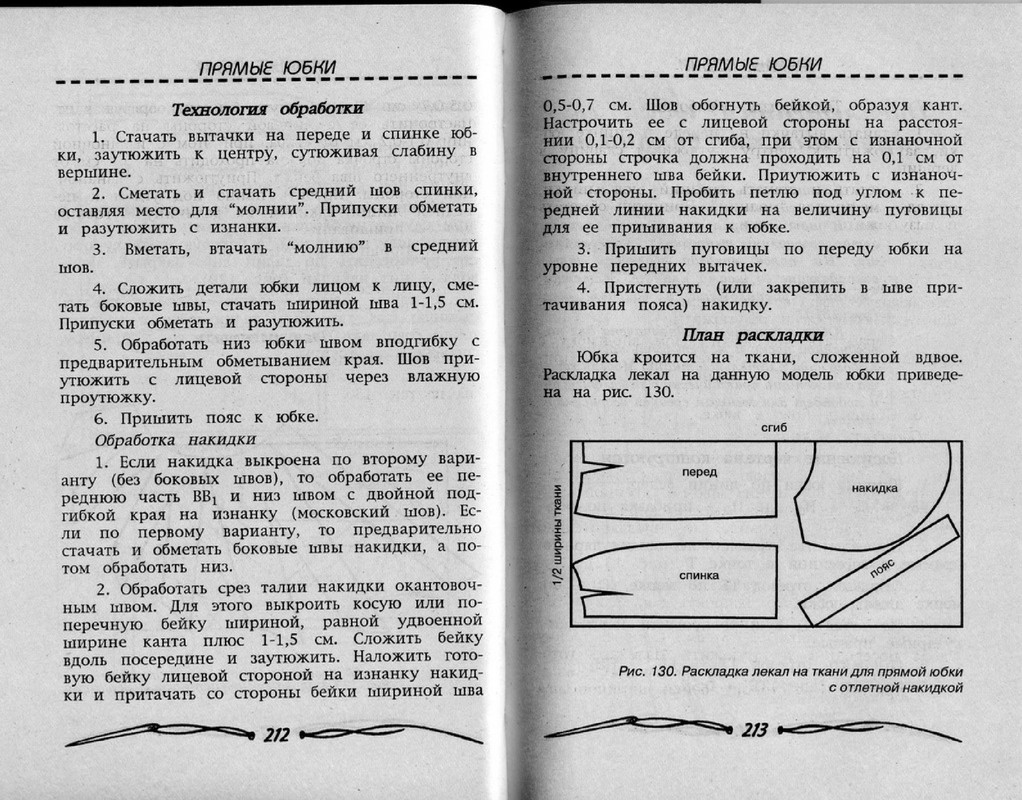 ПРЯМЫЕ ЮБКИ
Технология обработки
1. Стачать вытачки на переде и спинке юб-
ки, заутюжить к центру, сутюживая слабину в
вершине.
2. Сметать и стачать средний шов спинки,
оставляя место для “молнии”. Припуски обметать
и разутюжить с изнанки.
3. Вметать, втачать “молнию” в средний
шов.
4. Сложить детали юбки лицом к лицу, сме-
тать боковые швы, стачать шириной шва 1-1,5 см.
Припуски обметать и разутюжить.
5. Обработать низ юбки швом вподгибку с
предварительным обметыванием края. Шов при-
утюжить с лицевой стороны через влажную
проутюжку.
6. Пришить пояс к юбке.
Обработка накидки
1. Если накидка выкроена по второму вари-
анту (без боковых швов), то обработать ее пе-
реднюю часть ВВ₁ и низ швом с двойной под-
гибкой края на изнанку (московский шов). Ес-
ли по первому варианту, то предварительно
стачать и обметать боковые швы накидки, а по-
том обработать низ.
2. Обработать срез талии накидки окантовоч-
ным швом. Для этого выкроить косую или по-
перечную бейку шириной, равной удвоенной
ширине канта плюс 1-1,5 см. Сложить бейку
вдоль посередине и заутюжить. Наложить гото-
вую бейку лицевой стороной на изнанку накид-
ки и притачать со стороны бейки шириной шва
212
ПРЯМЫЕ ЮБКИ
0,5-0,7 см. Шов обогнуть бейкой, образуя кант.
Настрочить ее с лицевой стороны на расстоя-
нии 0,1-0,2 см от сгиба, при этом с изнаночной
стороны строчка должна проходить на 0,1 см от
внутреннего шва бейки. Приутюжить с изнаноч-
ной стороны. Пробить петлю под углом к пе-
редней линии накидки на величину пуговицы
для ее пришивания к юбке.
3. Пришить пуговицы по переду юбки на
уровне передних вытачек.
4. Пристегнуть (или закрепить в шве при-
тачивания пояса) накидку.
План раскладки
Юбка кроится на ткани, сложенной вдвое.
Раскладка лекал на данную модель юбки приведе-
на на рис. 130.
сгиб
1/2 ширины ткани
перед
накидка
спинка
пояс
Рис. 130. Раскладка лекал на ткани для прямой юбки
с отлетной накидкой
213